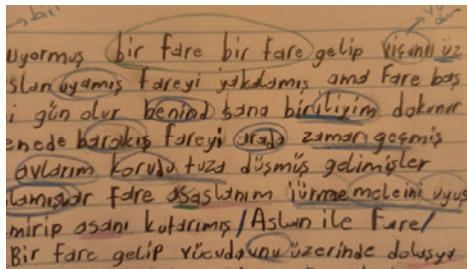 bari
uyormuş bir fare bir fare gelip vicanı üz
slan uyamış fareyi yakalamış ama fare baş
i gün olur benind sana bir iliyim dokunur
enede barakış fareyi arada zaman geçmiş
avlarım korudu tuza düşmüş gelimişler
lamışlar fare asaslanım
mirip asanı kutarımış / Aslan ile Fare /
Bir fare gelip vücudunu üzerinde dolaşya